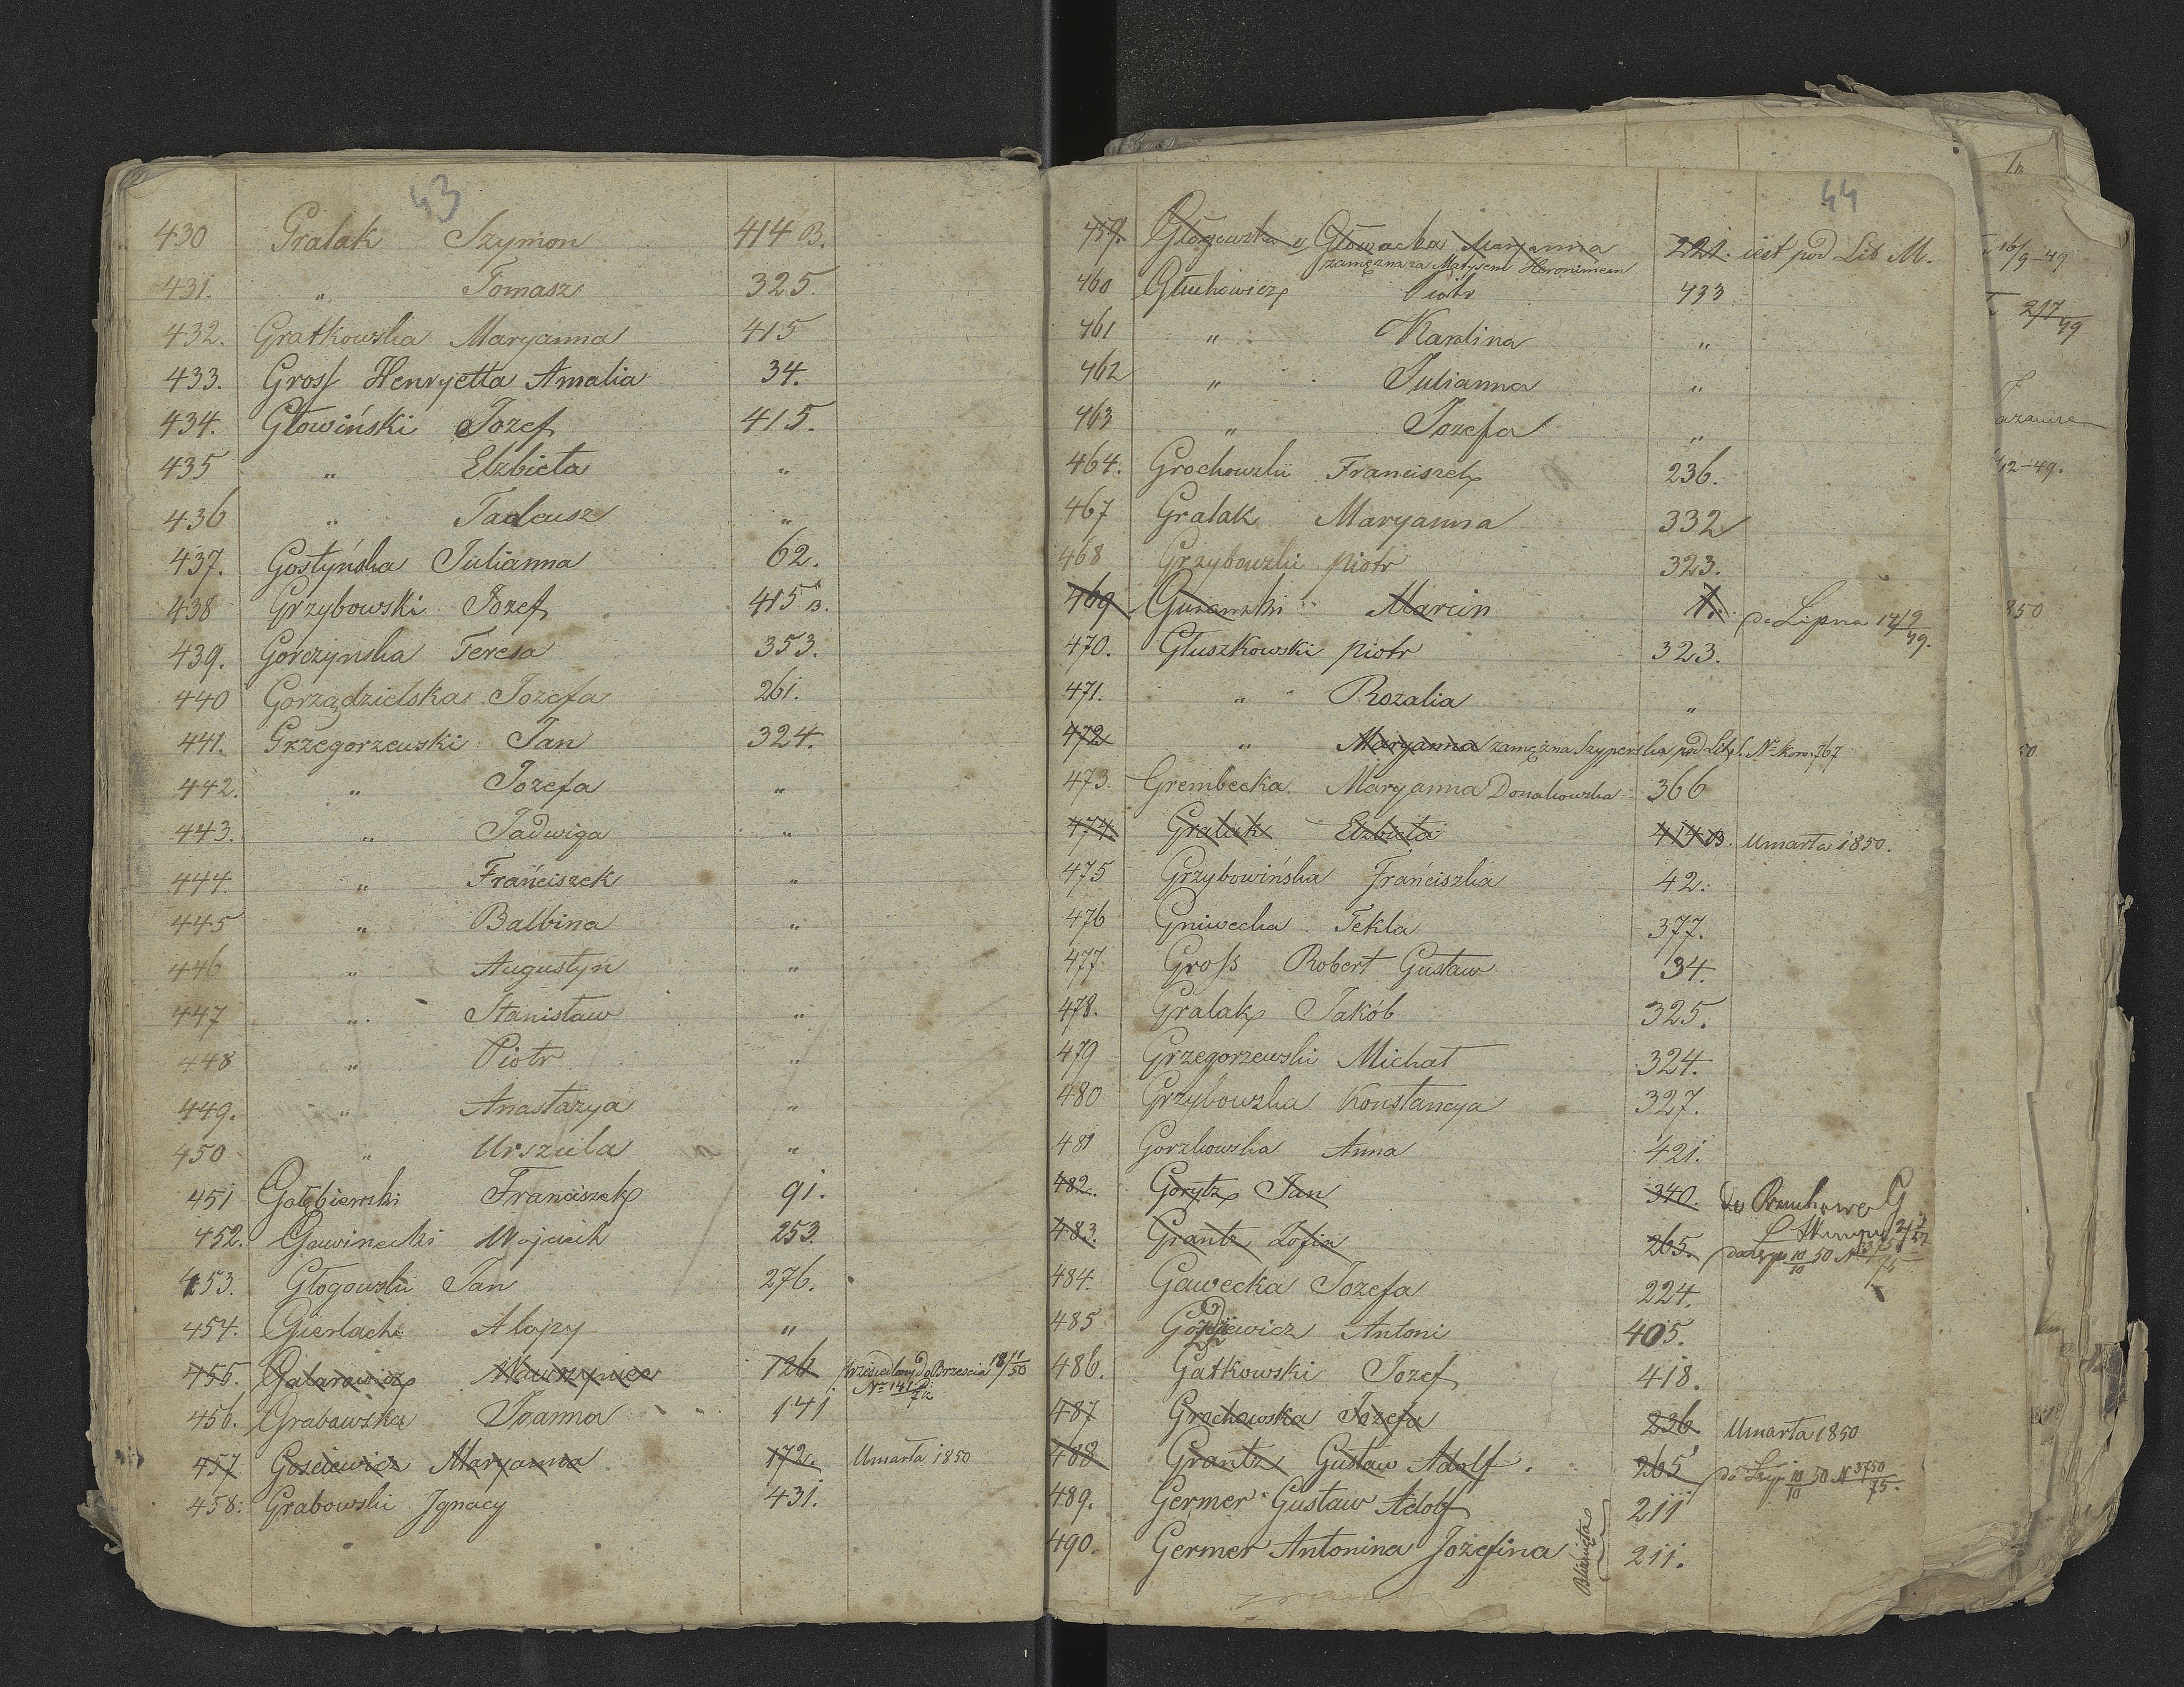 43
430 Gralak Szymon 414 B.
431. " Tomasz 325.
432. Gratkowska Maryanna 415
433. Gross Henryetta Amalia 34.
434. Głowiński Jozef 415.
435 " Elzbieta "
436 " Tadeusz "
437. Gostyńska Julianna 62.
438 Grzybowski Jozef 415 B.
439. Gorczynska Teresa 353.
440 Gorządzielska Jozefa 261.
441. Grzegorzewski Jan 324.
442. " Jozefa "
443. " Jadwiga "
444. " Frańciszek "
445 " Balbina "
446 " Augustyn "
447 " Stanisław "
448 " Piotr "
449. " Anastazya "
450 " Urszula "
451 Gołębiewski Franciszek 91.
452. Gawinecki Wojciech 253.
453. Głogowski Jan 276.
454. Gierlach Alojzy "
455. Galarowicz Wawrzyniec 126 Przesiedlony do Brzescia 18/11 50
456. Grabowska Joanna 141
457 Gościewicz Maryanna 172. Umarła 1850
458. Grabowski Jgnacy 431.
44
459. Głogowska v. Głowacka Maryanna 221. jest pod Lit. M.
zamęzna za Matysem Heronimem
460 Głuchowicz Piotr 433
461 " Karolina "
462 " Julianna "
463 " Jozefa "
464. Grochowski Franciszek 236.
467 Gralak Maryanna 332
468 Grzybowski Piotr 323.
469 Marcin 1. do Lipna 14/9 49.
470. Głuszkowski Piotr 323.
471. " Rozalia "
472 " Maryanna zamęzna Szyperska pod Lit. S. No kom. 767
473. Grembecka Maryanna Donakowska 366
474. Gralak Elzbieta 414 B. Umarła 1850.
475 Grzybowińska Frańciszka 42.
476 Gniwecka Tekla 377.
477 Gross Robert Gustaw 34.
478. Gralak Jakób 325.
479 Grzegorzewski Michał 324.
480 Grzybowska Konstancya 327.
481 Gorzkowska Anna 421.
482. Gorytz Jan 340.
483. Grantz Zofia 265.
484. Gawecka Jozefa 224.
485 Antoni 405.
486. Gatkowski Jozef 418.
487 Grochowska Jozefa 236 Umarła 1850
488 Grantz Gustaw Adolf. 265 do Lip 10/10 50 N 3750/75.
489. Germer Gustaw Adolf 211
490. Germer Antonina Jozefina 211.
Bliźnięta